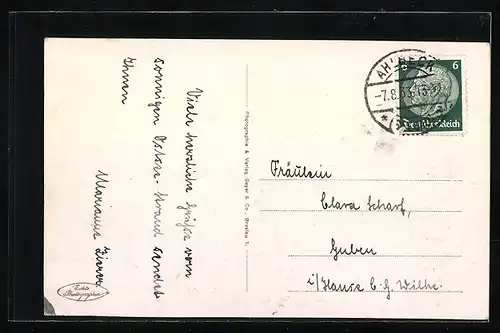 Viele herzliche Grüße vom
sonnigen Ostsee-Strand sendet
Ihnen
Marianne
Echte
Photographie
Photographie & Verlag Geyer & Co., Breslau
AHLBECK
-7.8.
6
Deutsches Reich
Fräulein
Clara Scharf,
Guben
i/Hause C. G. Wilke.